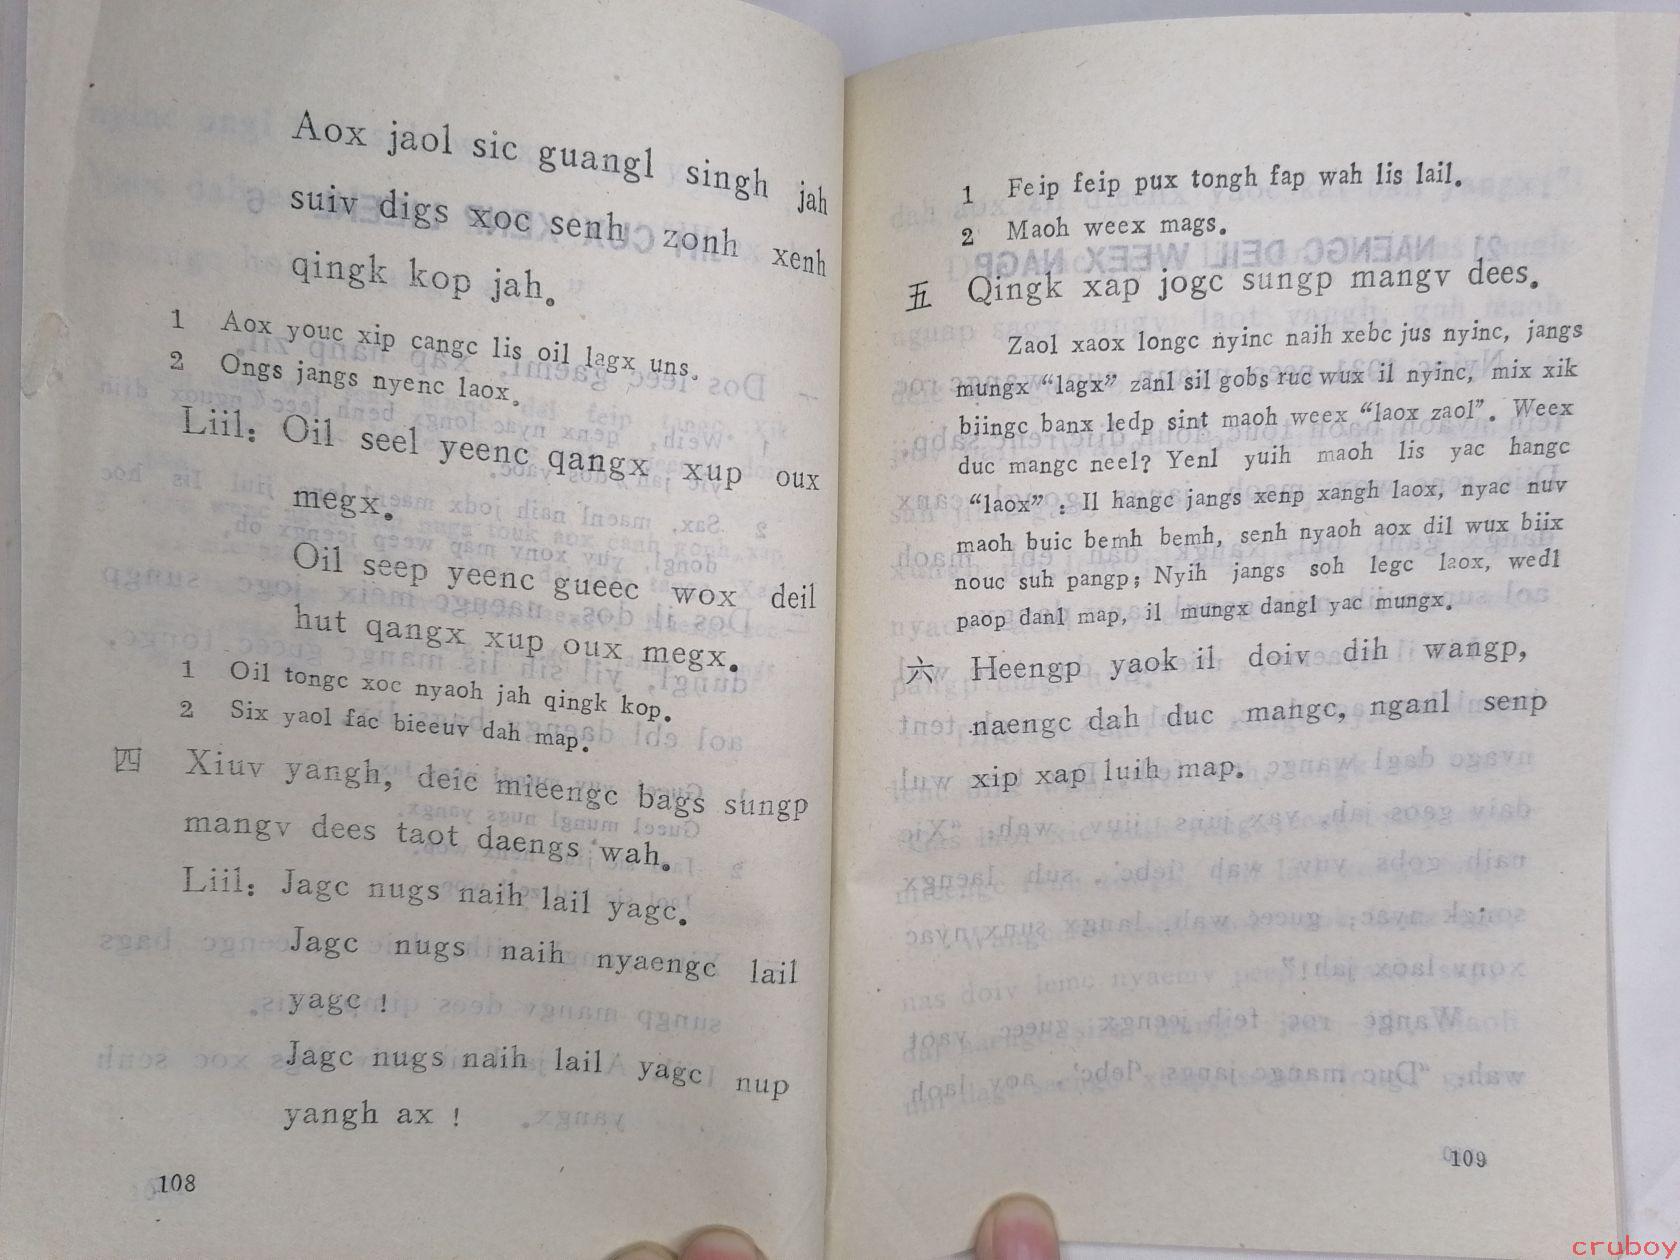 Aox jaol sic guangl singh jah
suiv digs xoc senh zonh xenh
qingk kop jah.
1 Aox youc xip cangc lis oil lagx uns.
2 Ongs jangs nyenc laox.
Liil: Oil seel yeenc qangx xup oux
megx.
Oil seep yeenc gueec wox deil
hut qangx xup oux megx.
1 Oil tongc xoc nyaoh jah qingk kop.
2 Six yaol fac bieeuv dah map.
四 Xiuv yangh, deic mieengc bags sungp
mangv dees taot daengs wah.
Liil: Jagc nugs naih lail yagc.
Jagc nugs naih nyaengc lail
yagc !
Jagc nugs naih lail yagc nup
yangh ax !
108
1 Feip feip pux tongh fap wah lis lail.
2 Maoh weex mags.
五 Qingk xap jogc sungp mangv dees.
Zaol xaox longc nyinc naih xebc jus nyinc, jangs
mungx “lagx” zanl sil gobs ruc wux il nyinc, mix xik
biingc banx ledp sint maoh weex “laox zaol”. Weex
duc mangc neel? Yenl yuih maoh lis yac hangc
“laox” : Il hangc jangs xenp xangh laox, nyac nuv
maoh buic bemh bemh, senh nyaoh aox dil wux biix
nouc suh pangp; Nyih jangs soh legc laox, wedl
paop danl map, il mungx dangl yac mungx.
六 Heengp yaok il doiv dih wangp,
naengc dah duc mangc, nganl senp
xip xap luih map.
109
cruboy